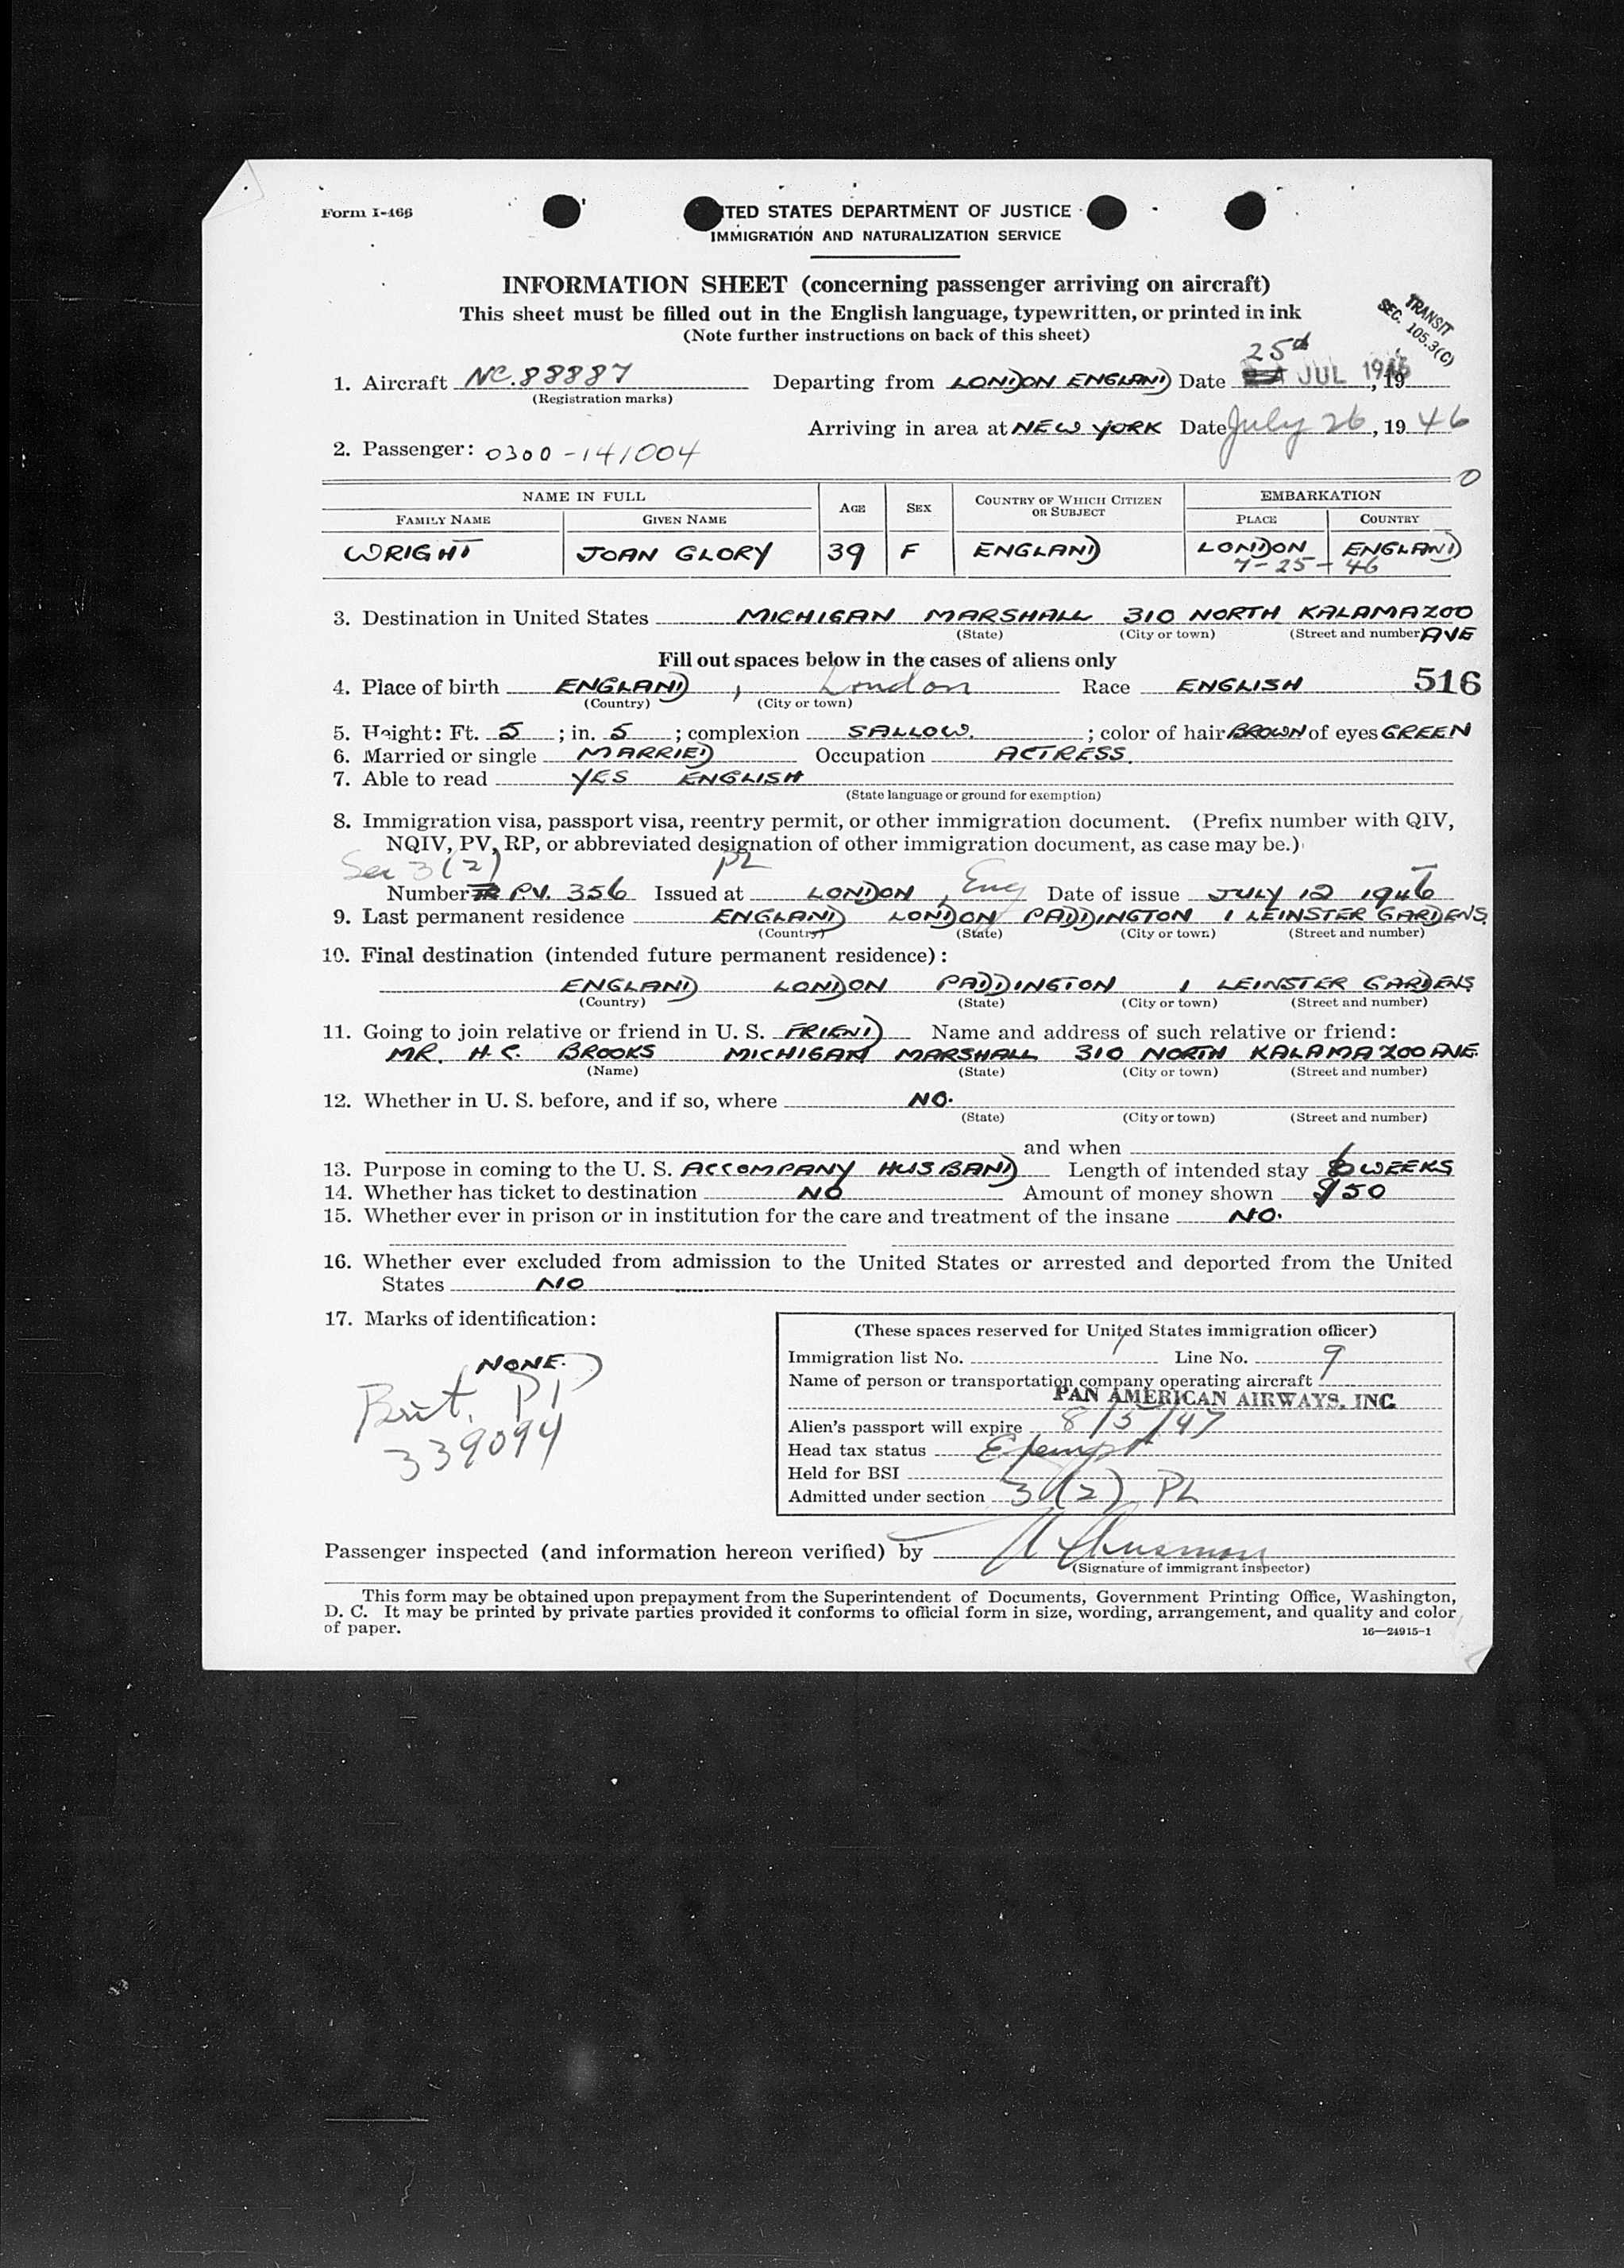 Form I-466
UNITED STATES DEPARTMENT OF JUSTICE
IMMIGRATION AND NATURALIZATION SERVICE
INFORMATION SHEET (concerning passenger arriving on aircraft)
This sheet must be filled out in the English language, typewritten, or printed in ink
(Note further instructions on back of this sheet)
TRANSIT
SEC. 105.3(C)
1. Aircraft NC.88887 Departing from LONDON ENGLAND Date 25th JUL 1946, 19
(Registration marks)
Arriving in area at NEW YORK Date July 26, 19 46
2. Passenger: 0300-141004
0
NAME IN FULL AGE SEX COUNTRY OF WHICH CITIZEN OR SUBJECT EMBARKATION
FAMILY NAME GIVEN NAME PLACE COUNTRY
WRIGHT JOAN GLORY 39 F ENGLAND LONDON ENGLAND
7-25-46
3. Destination in United States MICHIGAN MARSHALL 310 NORTH KALAMAZOO
(State) (City or town) (Street and number) AVE
Fill out spaces below in the cases of aliens only
4. Place of birth ENGLAND, London Race ENGLISH 516
(Country) (City or town)
5. Height: Ft. 5; in. 5; complexion SALLOW.; color of hair BROWN of eyes GREEN
6. Married or single MARRIED Occupation ACTRESS.
7. Able to read YES ENGLISH
(State language or ground for exemption)
8. Immigration visa, passport visa, reentry permit, or other immigration document. (Prefix number with QIV,
NQIV, PV, RP, or abbreviated designation of other immigration document, as case may be.)
Sec 3(2) PL
Number P.V. 356 Issued at LONDON, Eng Date of issue JULY 12 1946
9. Last permanent residence ENGLAND LONDON PADDINGTON 1 LEINSTER GARDENS
(Country) (State) (City or town) (Street and number)
10. Final destination (intended future permanent residence):
ENGLAND LONDON PADDINGTON 1 LEINSTER GARDENS
(Country) (State) (City or town) (Street and number)
11. Going to join relative or friend in U. S. FRIEND Name and address of such relative or friend:
MR. H. C. BROOKS MICHIGAN MARSHALL 310 NORTH KALAMAZOO AVE.
(Name) (State) (City or town) (Street and number)
12. Whether in U. S. before, and if so, where NO.
(State) (City or town) (Street and number)
and when
13. Purpose in coming to the U. S. ACCOMPANY HUSBAND Length of intended stay 6 WEEKS
14. Whether has ticket to destination NO Amount of money shown $50
15. Whether ever in prison or in institution for the care and treatment of the insane NO.
16. Whether ever excluded from admission to the United States or arrested and deported from the United
States NO
17. Marks of identification:
NONE.
Brit. PP
339094
(These spaces reserved for United States immigration officer)
Immigration list No. 1 Line No. 9
Name of person or transportation company operating aircraft
PAN AMERICAN AIRWAYS, INC.
Alien's passport will expire 8/5/47
Head tax status Exempt
Held for BSI
Admitted under section 3(2) PL
Passenger inspected (and information hereon verified) by
(Signature of immigrant inspector)
This form may be obtained upon prepayment from the Superintendent of Documents, Government Printing Office, Washington,
D. C. It may be printed by private parties provided it conforms to official form in size, wording, arrangement, and quality and color
of paper.
16—24915-1